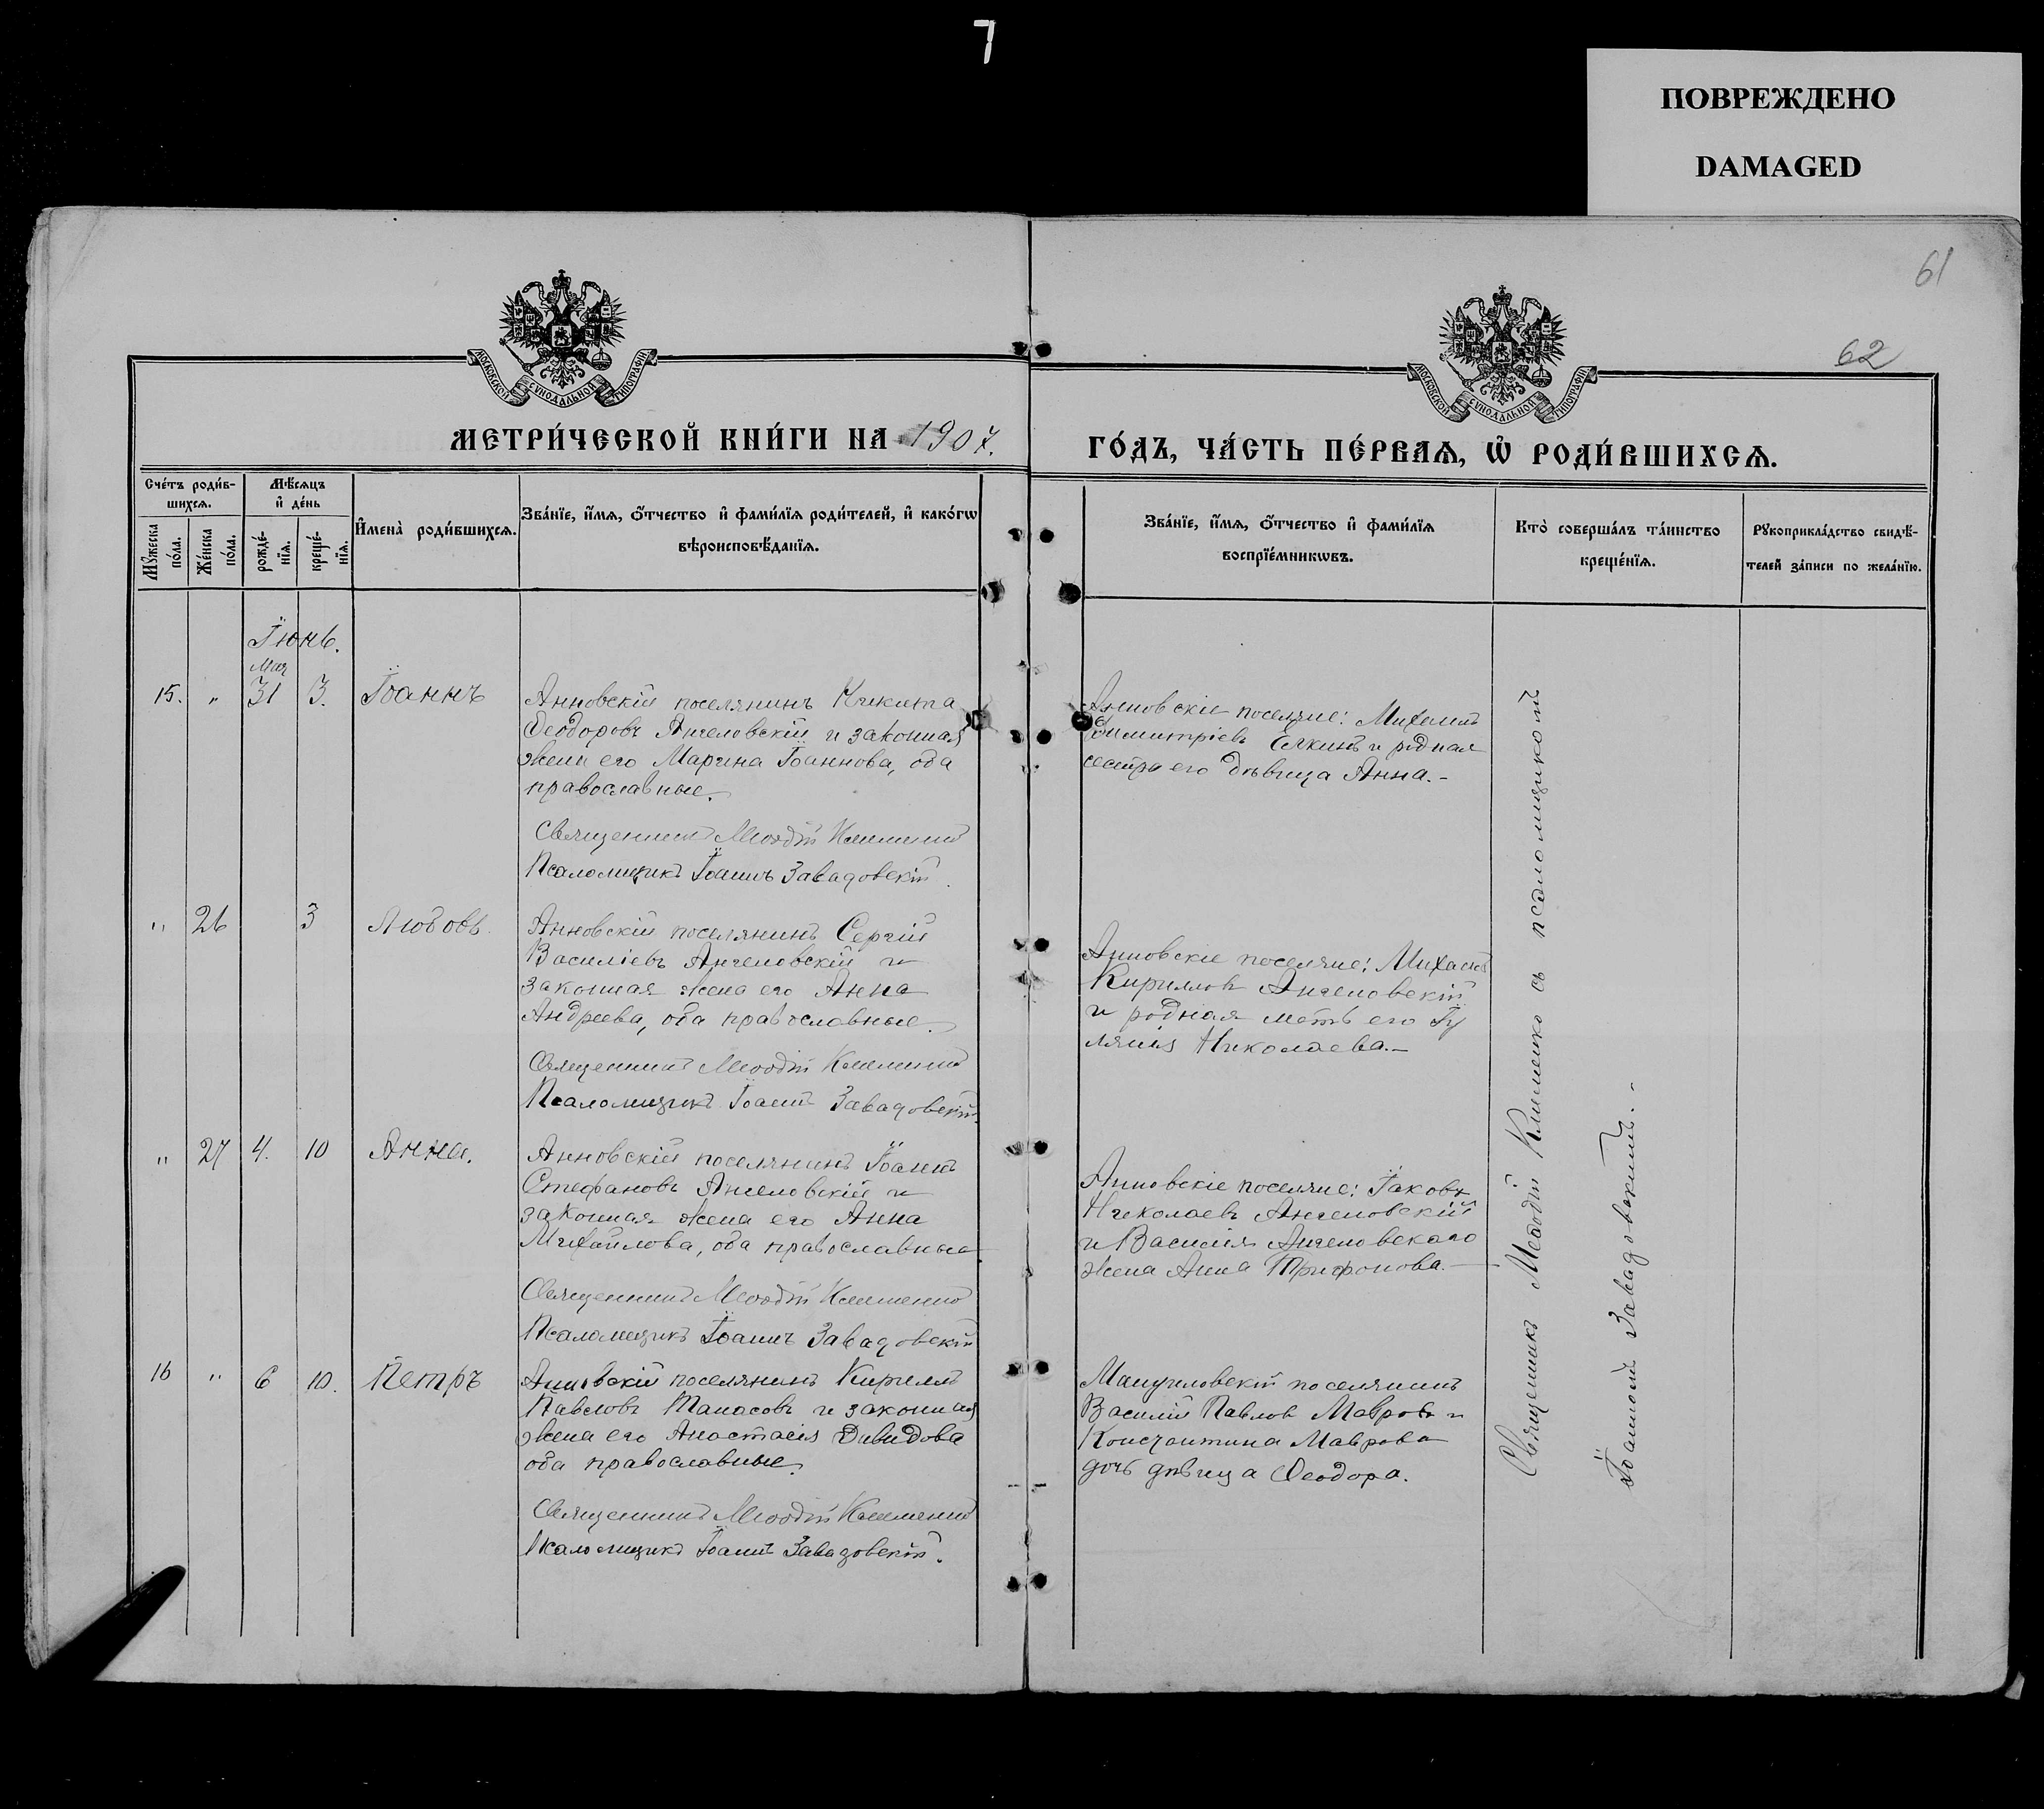 7
ПОВРЕЖДЕНО
DAMAGED
61
62
МОСКОВСКОЙ СѴНОДАЛЬНОЙ ТИПОГРАФІИ
МОСКОВСКОЙ СѴНОДАЛЬНОЙ ТИПОГРАФІИ
МЕТРИ́ЧЕСКОЙ КНИ́ГИ НА 1907.
ГО́ДЪ, ЧА́СТЬ ПЕ́РВАѦ, Ѡ҆ РОДИ́ВШИХСѦ.
Сче́тъ роди́в-
шихсѧ.
Мꙋ́жеска
по́ла.
Же́нска
по́ла.
Мѣ́сѧцъ
и҆ де́нь
рожде́-
нїѧ.
креще́-
нїѧ.
И҆мена̀ роди́вшихсѧ.
Зва́нїе, и҆́мѧ, ѻ҆́тчество и҆ фами́лїѧ роди́телей, и҆ како́гѡ
вѣроисповѣ́данїѧ.
Зва́нїе, и҆́мѧ, ѻ҆́тчество и҆ фами́лїѧ
воспрїе́мникѡвъ.
Кто̀ соверша́лъ та́инство
креще́нїѧ.
Рꙋкоприкла́дство свидѣ́-
телей за́писи по жела́нїю.
Іюнь.
Мая
15. " 31 3. Іоаннъ
Анновскій поселянинъ Никита
Ѳеодоровъ Ангеловскій и законная
жена его Марина Іоаннова, оба
православные.
Священникъ Меѳодій Клименко
Псаломщикъ Іоаннъ Завадовскій.
Анновскіе поселяне: Михаилъ
Димитріевъ Елкинъ и родная
сестра его дѣвица Анна.-
" 26 3 Любовь.
Анновскій поселянинъ Сергій
Василіевъ Ангеловскій и
законная жена его Анна
Андреева, оба православные.
Священникъ Меѳодій Клименко
Псаломщикъ Іоаннъ Завадовскій.
Анновскіе поселяне: Михаилъ
Кирилловъ Ангеловскій
и родная мать его Іу
ліанія Николаева.-
" 27 4. 10 Анна.
Анновскій поселянинъ Іоаннъ
Стефановъ Ангеловскій и
законная жена его Анна
Михайлова, оба православные
Священникъ Меѳодій Клименко
Псаломщикъ Іоаннъ Завадовскій
Анновскіе поселяне: Іаковъ
Николаевъ Ангеловскій
и Василія Ангеловскаго
жена Анна Трифонова.-
16 " 6 10. Петръ
Анновскій поселянинъ Кириллъ
Павловъ Танасовъ и законная
жена его Анастасія Давидова
оба православные.
Священникъ Меѳодій Клименко
Псаломщикъ Іоаннъ Завадовскій.
Мануиловскій поселянинъ
Василій Павловъ Мавровъ и
Константина Маврова
дочь дѣвица Ѳеодора.
Священникъ Меѳодій Клименко съ псаломщикомъ
Іоанномъ Завадовскимъ.-